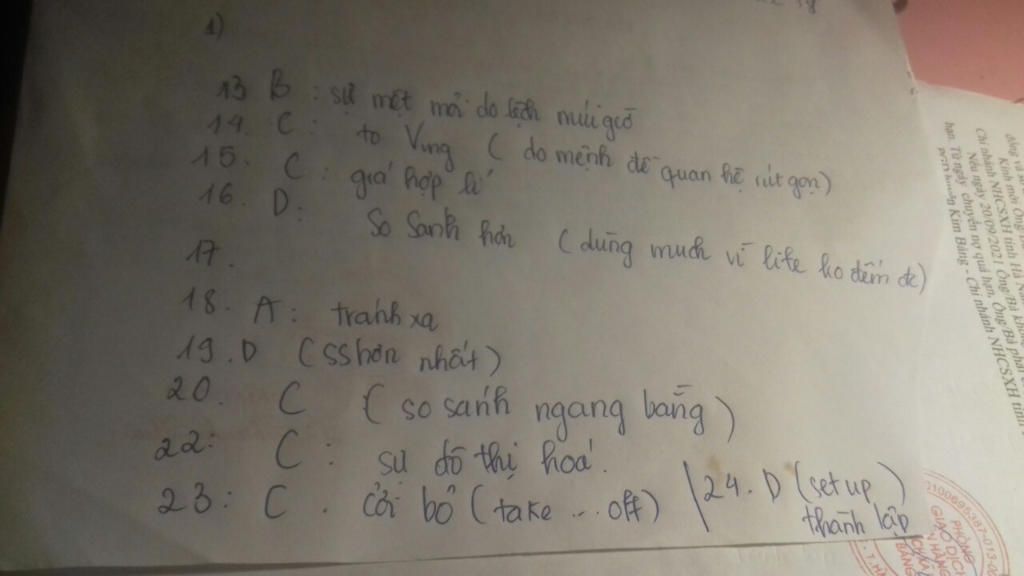 1)
13 B : sự mệt mỏi do lệch múi giờ
14. C : to Vung ( do mệnh đề quan hệ rút gọn)
15. C : giá hợp lí
16. D : so sánh hơn ( dùng much vì life ko đếm đc)
17.
18. A : tránh xa
19. D (ss hơn nhất)
20. C ( so sánh ngang bằng )
22: C : sự đô thị hoá.
23: C . cởi bỏ ( take ... off)
24. D (set up )
thành lập
Chi nhánh NHCSXH tỉnh Hà
Nếu ngày 20/09/2021 Ông, Ông/Bà phải
hạn. Từ ngày chuyển nợ quá hạn, Chi nhánh NHCSXH tỉnh
Kim Bảng
PHÒNG
GIAO DỊCH
NGÂN HÀNG